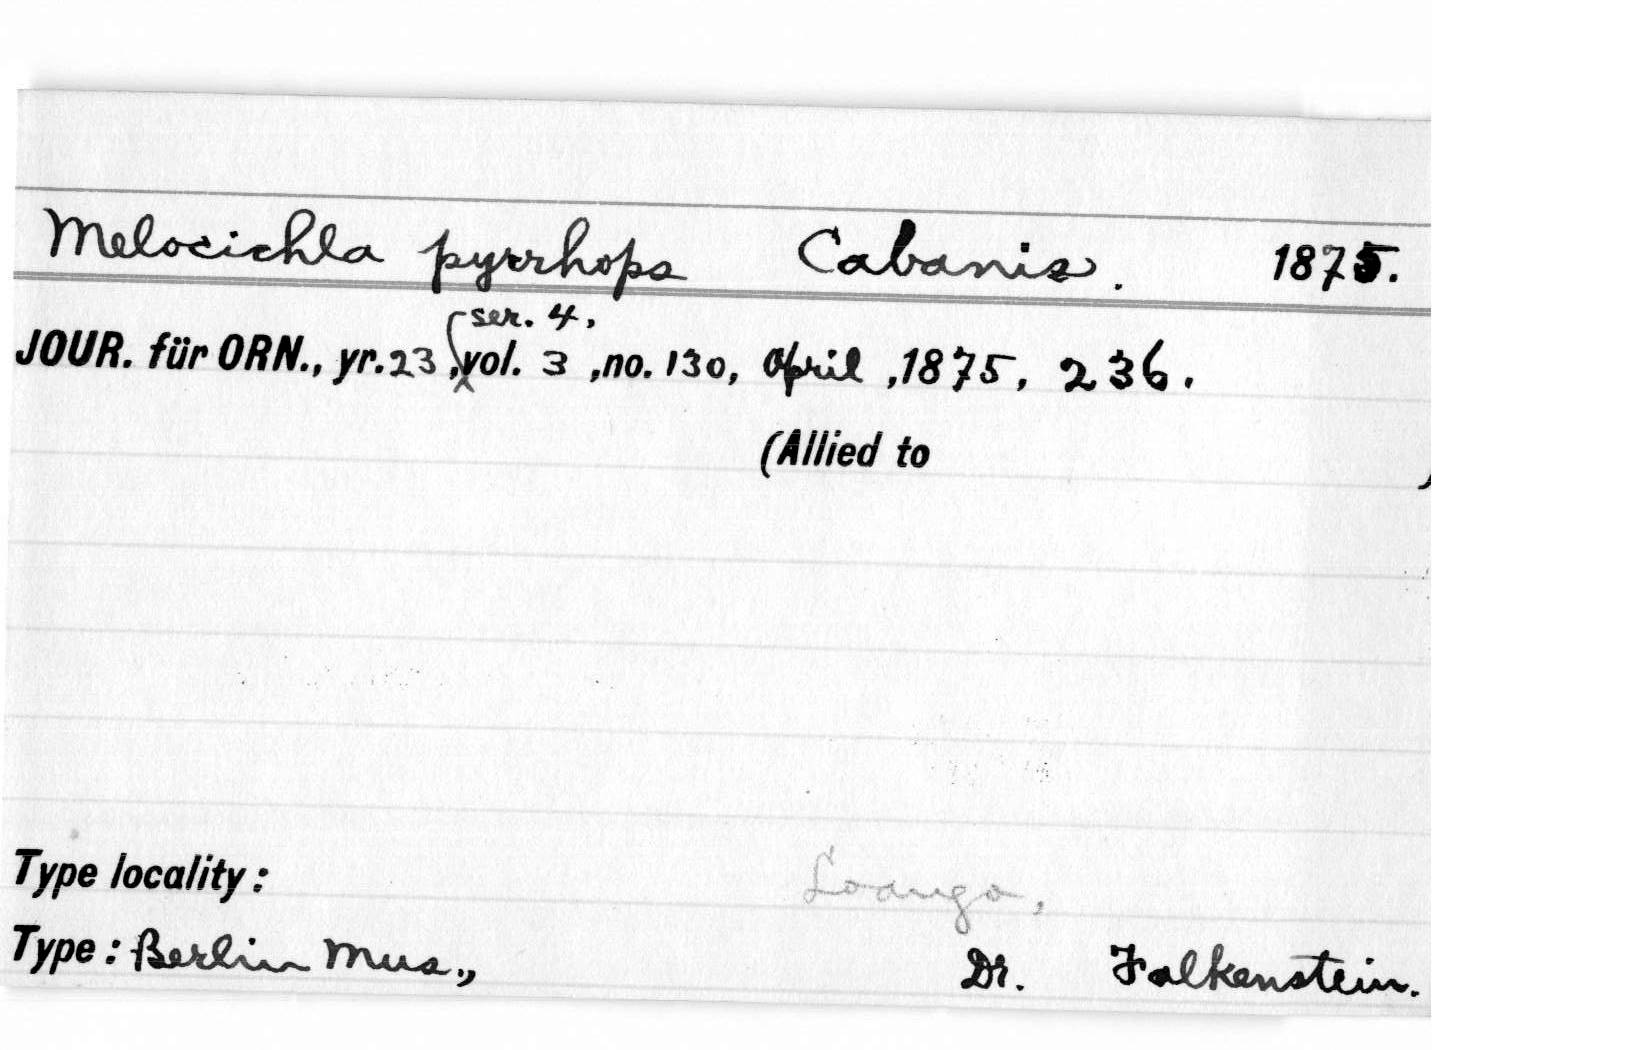 Melocichla pyrrhops Cabanis. 1875.
ser. 4,
JOUR. für ORN., yr. 23, vol. 3, no. 130, April, 1875, 236.
(Allied to )
Type locality: Loango,
Type: Berlin Mus., Dr. Falkenstein.